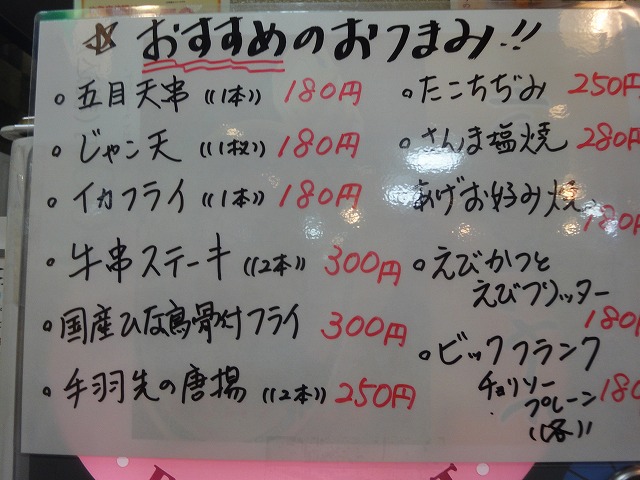 ☆ おすすめのおつまみ!!
○ 五目天串 (1本) 180円
○ じゃこ天 (1枚) 180円
○ イカフライ (1本) 180円
○ 牛串ステーキ (2本) 300円
○ 国産ひな鳥骨付フライ 300円
○ 手羽先の唐揚 (2本) 250円
○ たこちぢみ 250円
○ さんま塩焼 280円
あげお好み焼 180円
○ えびかつと
えびフリッター
180円
○ ビックフランク
チョリソー 180
プレーン
(各)